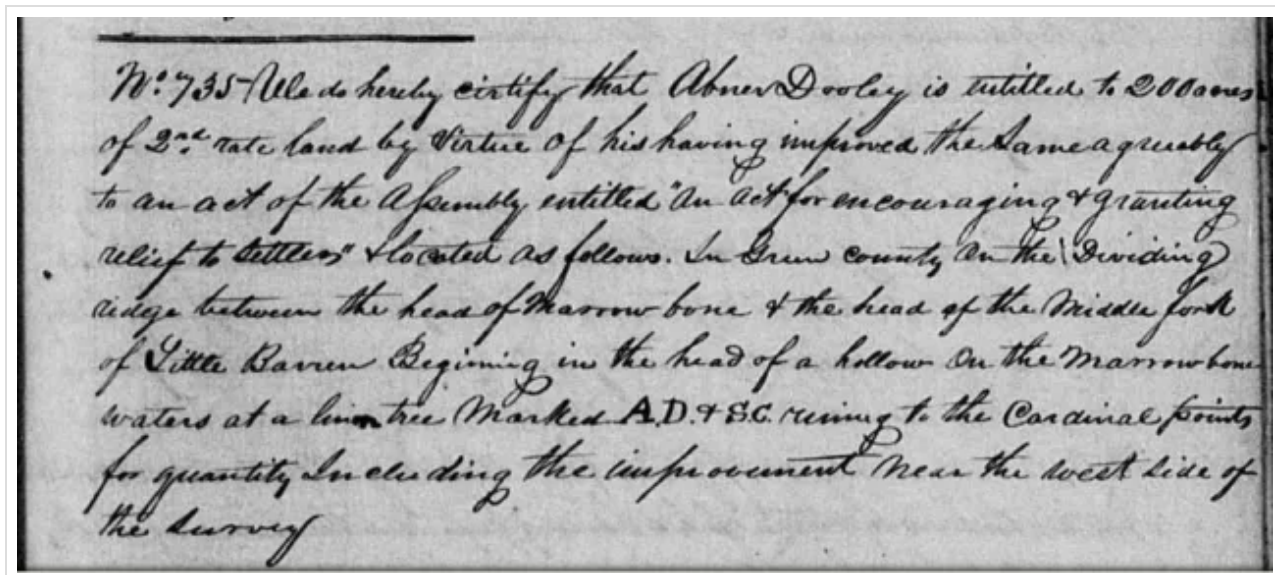 No. 735 We do hereby certify that Abner Dooley is intitled to 200 acres
of 2nd rate land by Virtue of his having improved the Same agreeably
to an act of the Assembly entitled "an act for encouraging & granting
relief to Settlers" & located as follows. In Green county on the Dividing
ridge between the head of Marrow bone & the head of the Middle fork
of Little Barren Begining in the head of a hollow on the Marrowbone
waters at a linn tree Marked A.D. & S.C. runing to the Cardinal points
for quantity Including the improvement Near the west side of
the Survey